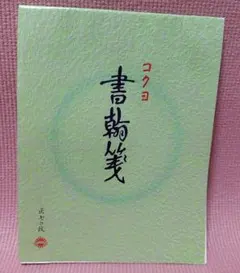 コクヨ
書翰箋